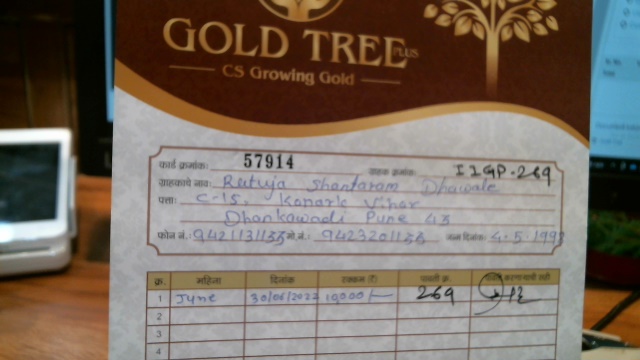 GOLD TREE PLUS
CS Growing Gold
कार्ड क्रमांक: 57914 ग्राहक क्रमांक: IIGP-269
ग्राहकाचे नाव: Rutuja Shantaram Dhawale
पत्ता: C-15, Kopark Vihar
Dhankawadi Pune 43
फोन नं.: 9421131133 मो नं.: 9423201133 जन्म दिनांक: 4-5-199
क्र. महिना दिनांक रक्कम (₹) पावती क्र.
1 June 30/06/2022 19000/- 269
2
3
4